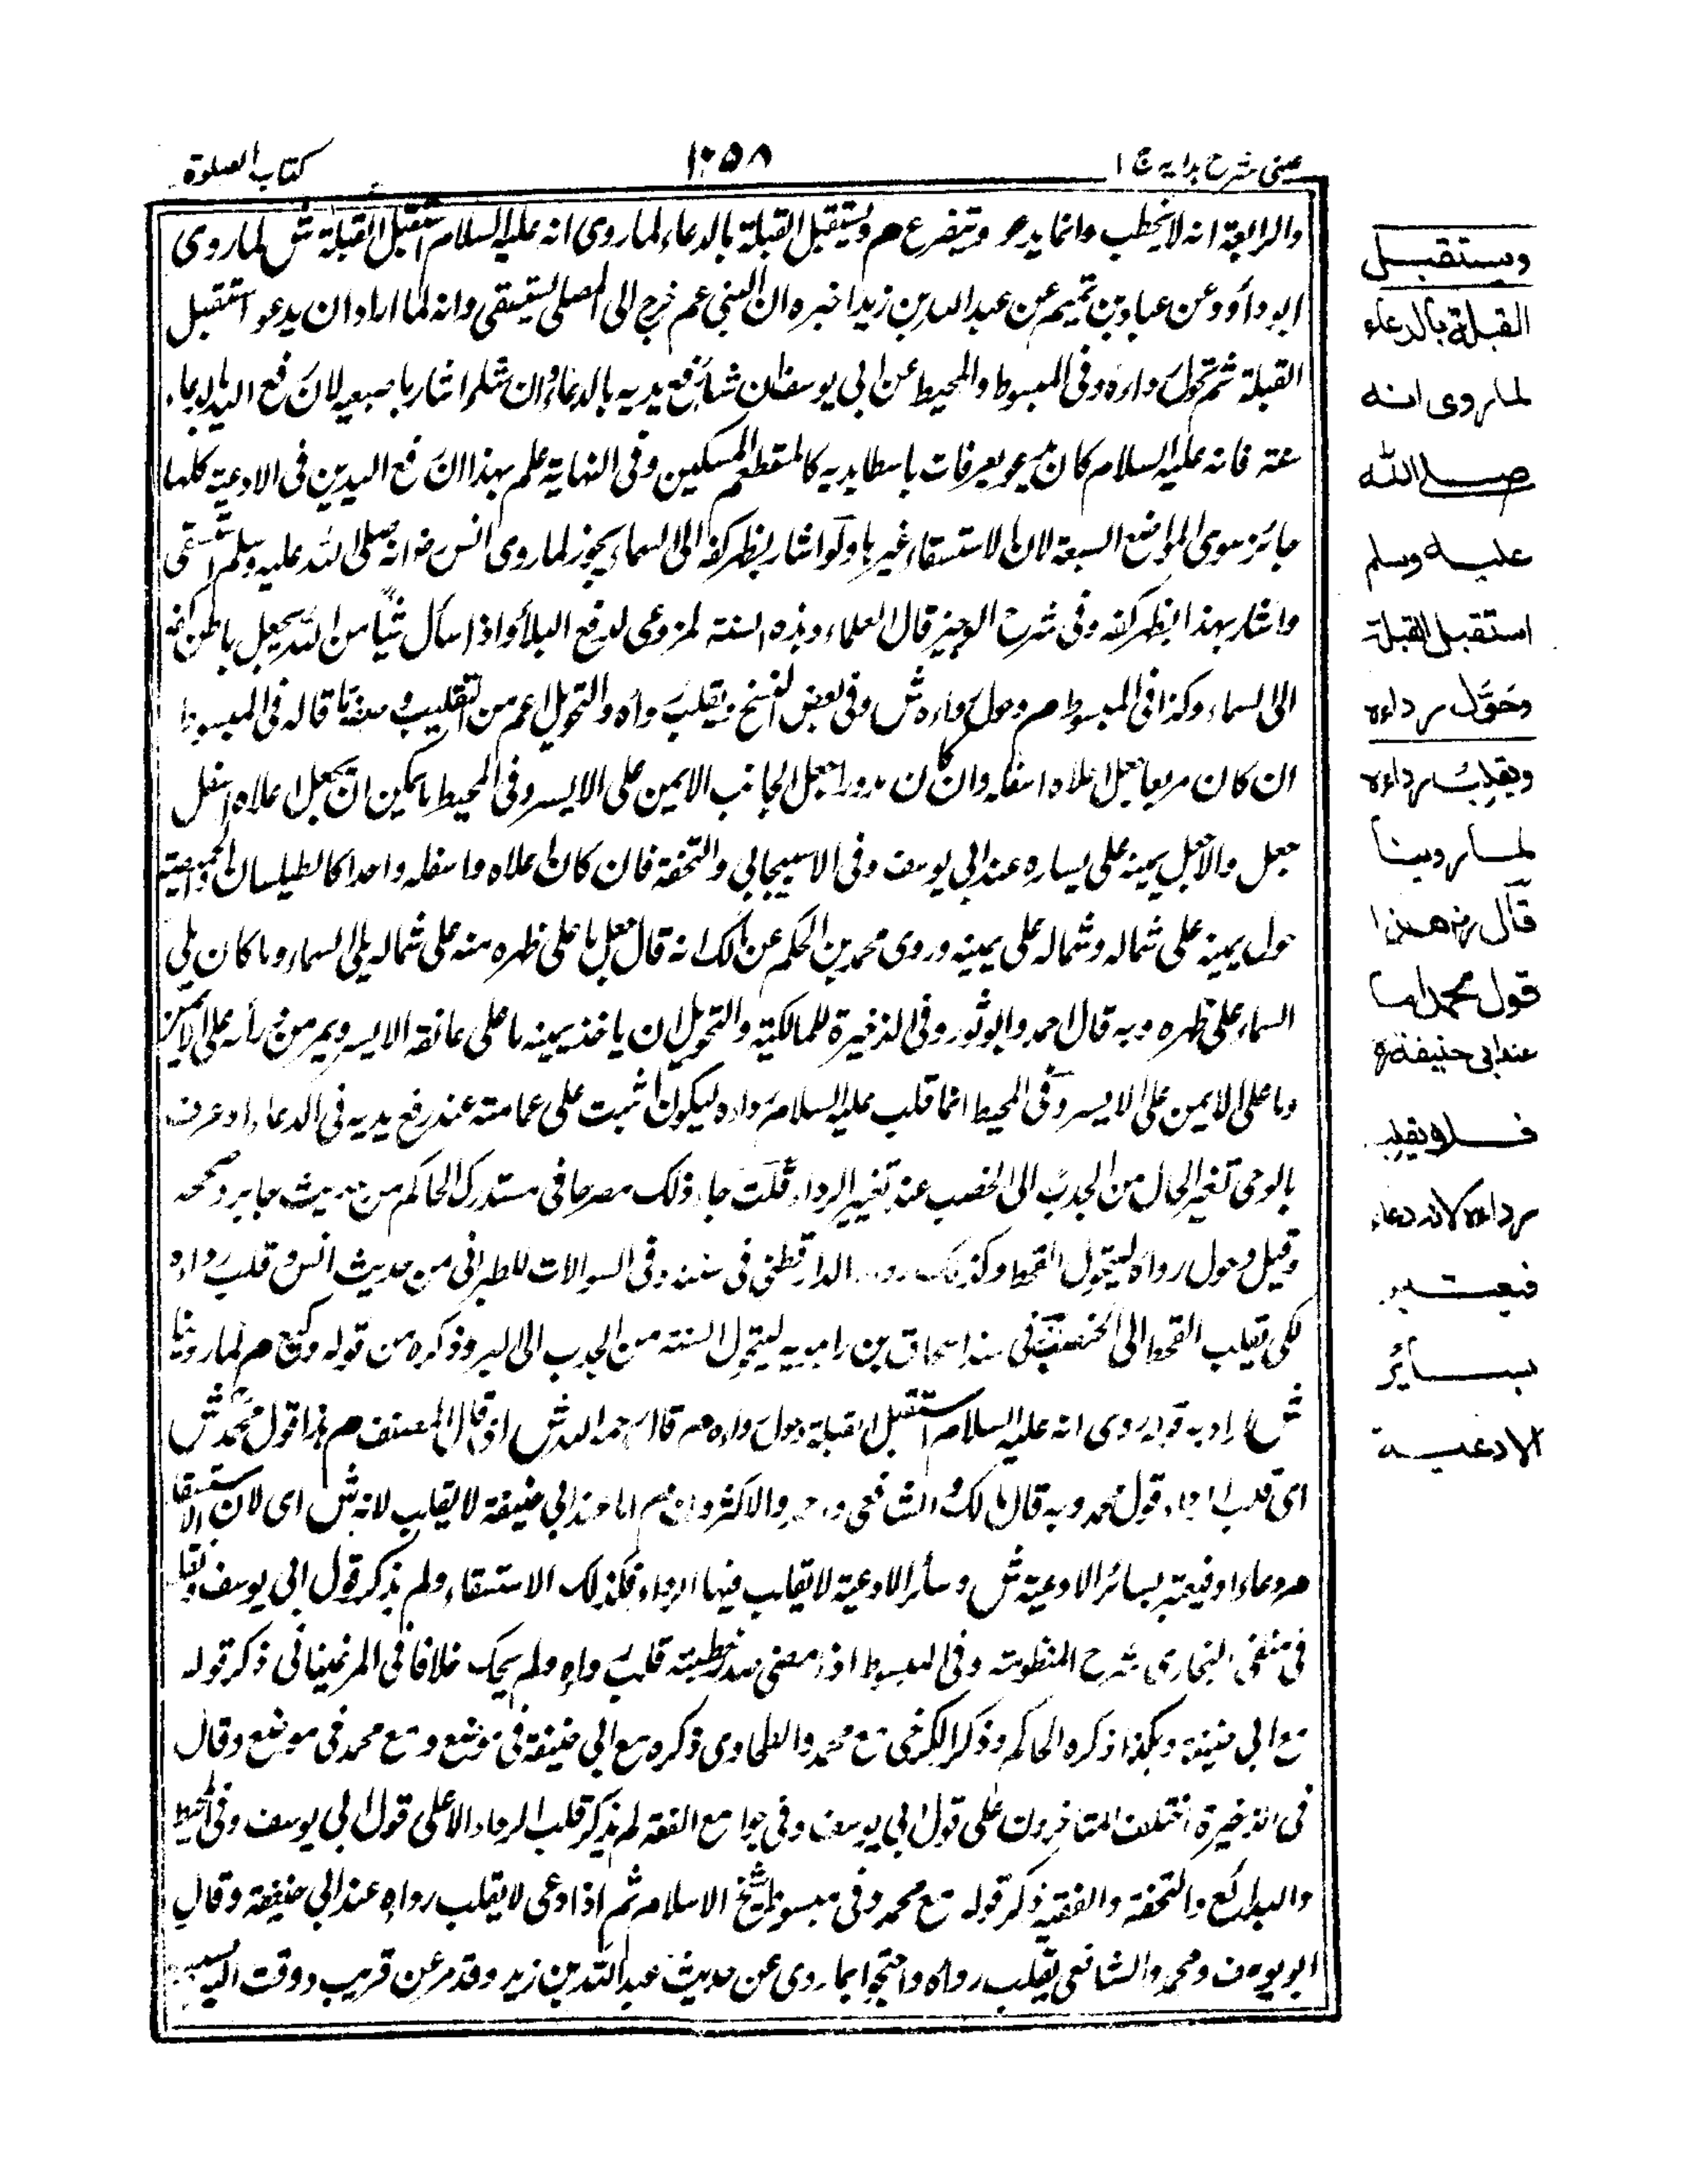 عینی شرح ہدایہ ج ۱
۱۰۵۸
کتاب الصلوۃ
والرابعة انه لا يخطب وانما يدعو ويتضرع م ويستقبل القبلة بالدعاء لما روى انه عليه السلام استقبل القبلة ش لما روى
ابو داؤد عن عباد بن تميم عن عبد الله بن زيد اخبره ان النبي عم خرج الى المصلى يستسقى وانه لما اراد ان يدعو استقبل
القبلة ثم تحول رداءه وفى المبسوط والمحيط عن ابى يوسف ان شاء رفع يديه بالدعاء وان شاء اشار باصبعيه لان رفع اليد بالدعاء
سنة فانه عليه السلام كان يدعو بعرفات باسطا يديه كالمستطعم المسكين وفى النهاية علم بهذا ان رفع اليدين فى الادعية كلها
جائز سوى المواضع السبعة لان الاستسقاء غيرها ولو اشار بظهر كفه الى السماء يجوز لما روى انس رض انه صلى الله عليه وسلم استسقى
واشار بهذا بظهر كفه وفى شرح الوجيز قال العلماء وهذه السنة لمن دعى لدفع البلاء واذا سأل شيئا من الله يجعل باطن كفه
الى السماء وكذا فى المبسوط م وحول رداءه ش وفى بعض النسخ ويقلب رداءه والتحويل اعم من التقليب وصفة ما قاله فى المبسوط
ان كان مربعا جعل اعلاه اسفله وان كان مدورا جعل الجانب الايمن على الايسر وفى المحيط ما يمكن ان يجعل اعلاه اسفل
جعل والا جعل يمينه على يساره عند ابى يوسف وفى الاسبيجابى والتحفة فان كان اعلاه واسفله واحدا كالطيلسان والخميصة
حول يمينه على شماله وشماله على يمينه وروى محمد بن الحكم عن مالك انه قال يجعل ما على ظهره منه على شماله يلى السماء وما كان يلى
السماء على ظهره وبه قال احمد وابو ثور وفى الذخيرة للمالكية والتحويل ان ياخذ بيمينه ما على عاتقه الايسر ويمر من رأسه على الايمن
وما على الايمن على الايسر وفى المحيط انما قلب عليه السلام رداءه ليكون اثبت على عامته عند رفع يديه فى الدعاء او عرف
بالوحى تغير الحال من الجدب الى الخصب عند تغيير الرداء قلت جاء ذلك مصرحا فى مستدرك الحاكم من حديث جابر وصححه
وقيل وحول رداءه ليتحول القحط وكذلك رواه الدارقطنى فى سننه وفى السوالات للطبرانى من حديث انس وقلب رداءه
لكى يقلب القحط الى الخصب وفى مسند اسحاق بن راهويه ليتحول السنة من الجدب الى وذكره من قول وكيع م لما روينا
ش اراد به قوله روى انه عليه السلام استقبل القبلة وحول رداءه م قال رحمه الله ش اى قال المصنف م هذا قول محمد ش
اى قلب الرداء قول محمد وبه قال مالك والشافعى واحمد والاكثرون م اما عند ابى حنيفة لا يقلب لانه ش اى لان الاستسقاء
م دعاء او فيعتبر بسائر الادعية ش وسائر الادعية لا يقلب فيها الرداء فكذلك الاستسقاء ولم يذكر قول ابى يوسف
فى البخارى شرح المنظومة وفى المبسوط اذا مضى صدر خطبته قلب رداءه ولم يحك خلافا فى المرغينانى ذكر قوله
مع ابى حنيفة وهكذا ذكره الحاكم وذكر الكرخى مع محمد والطحاوى ذكره مع ابى حنيفة فى موضع ومع محمد فى موضع وقال
فى الذخيرة اختلف المتاخرون على قول ابى يوسف وفى جوامع الفقه لم يذكر قلب الرداء الا على قول ابى يوسف وفى المحيط
والبدائع والتحفة والفقيه ذكر قوله مع محمد وفى مبسوط شيخ الاسلام ثم اذا دعى لا يقلب رداءه عند ابى حنيفة وقال
ابو يوسف ومحمد والشافعى يقلب رداءه واحتجوا بما روى عن حديث عبد الله بن زيد وقد مر عن قريب ووقت
ويستقبل
القبلة بالدعاء
لما روى انه
صلى الله
عليه وسلم
استقبل القبلة
وحَوَّل رداءه
ويقلب رداءه
لما روينا
قال رض هذا
قول محمد اما
عند ابى حنيفة رح
فلا يقلب
رداءه لانه دعاء
فيعتبر
بسائر
الادعية